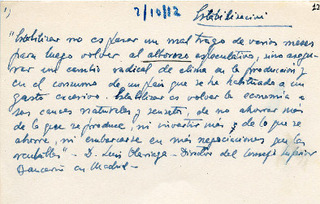 2/10/12
Estabilización
12
"Estabilizar no es pasar un mal trago de varios meses
para luego volver al alborozo especulativo, sino asegu-
rar un cambio radical de clima en la producción y
en el consumo de un país que se ha habituado a un
gasto excesivo. Estabilizar es volver la economía a
sus cauces naturales y sensatos, de no ahorrar más
de lo que se produce, ni invertir más de lo que se
ahorre, ni embarcarse en más negociaciones que las
rentables" - D. Luis Olariaga - Director del Consejo Superior
Bancario en Madrid -